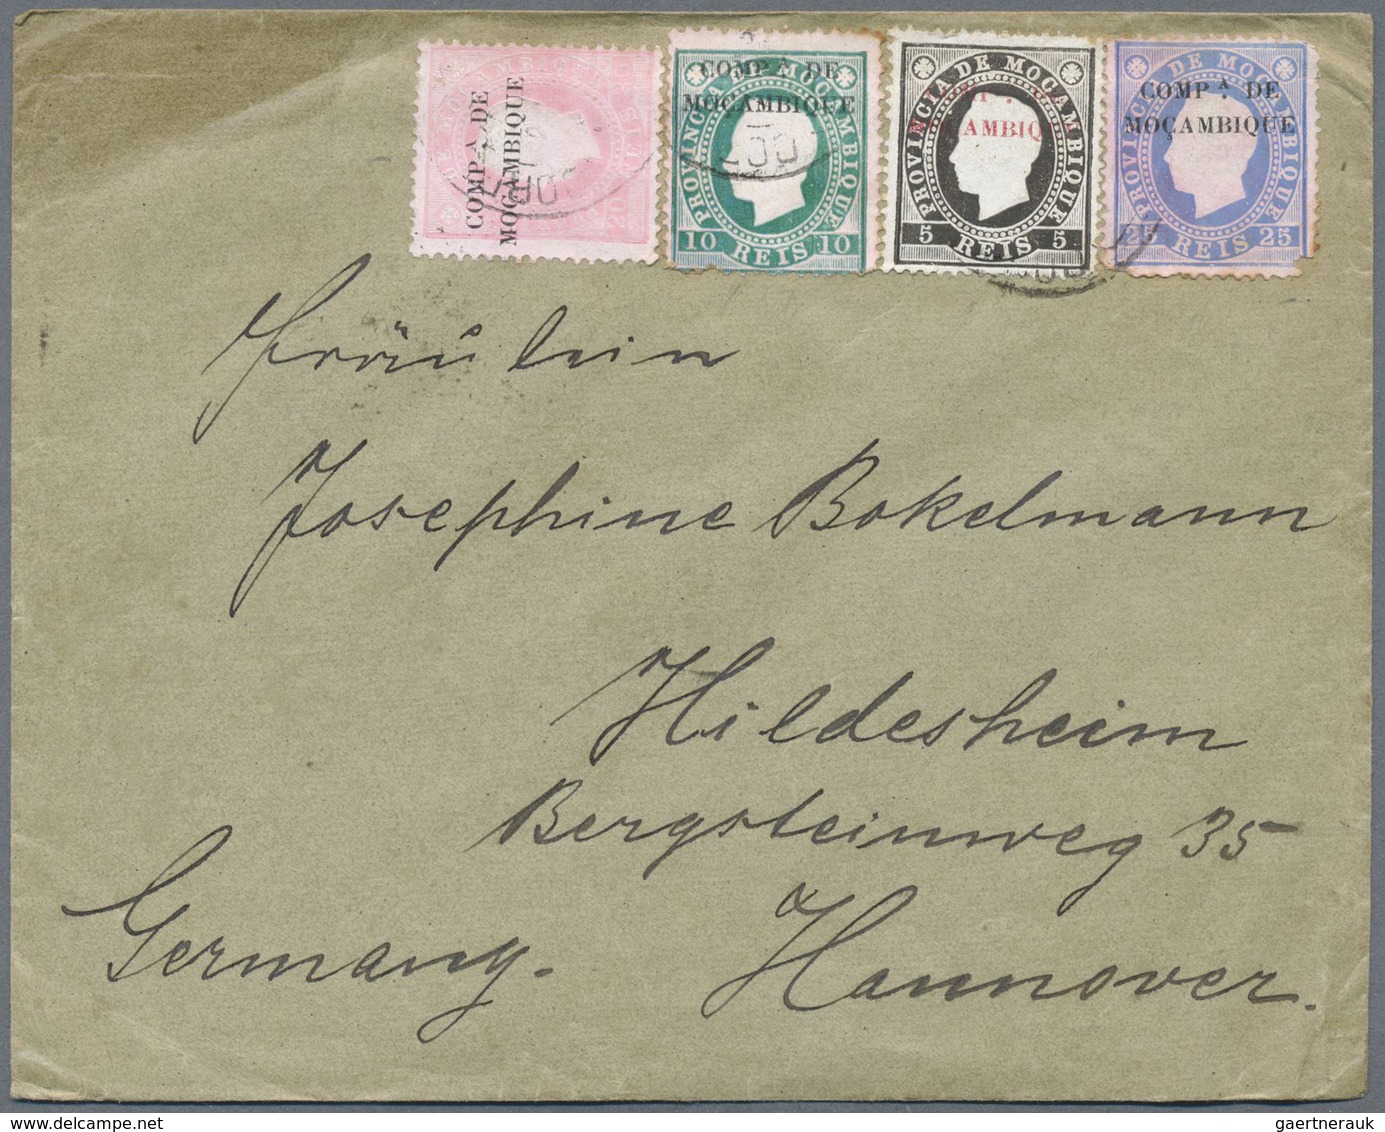 COMP.A DE
MOÇAMBIQUE
COMP.A DE
MOÇAMBIQUE
PROVINCIA DE MOÇAMBIQUE
10 REIS 10
AMBIQ
PROVINCIA DE MOÇAMBIQUE
5 REIS 5
COMP.A DE
MOÇAMBIQUE
PROVINCIA DE MOÇAMBIQUE
25 REIS 25
Fräulein
Josephine Bokelmann
Hildesheim
Bergsteinweg 35
Germany. Hannover.
gaertnerauk